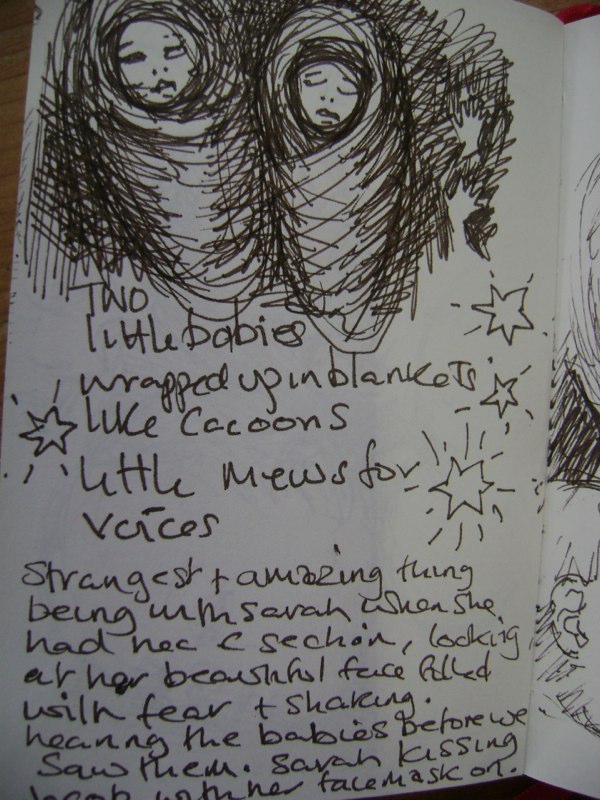 Two
little babies
wrapped up in blankets
like cacoons
little mews for
voices
strangest + amazing thing
being with sarah when she
had her c section, looking
at her beautiful face filled
with fear + shaking.
hearing the babies before we
saw them. sarah kissing
Jacob with her face mask on.